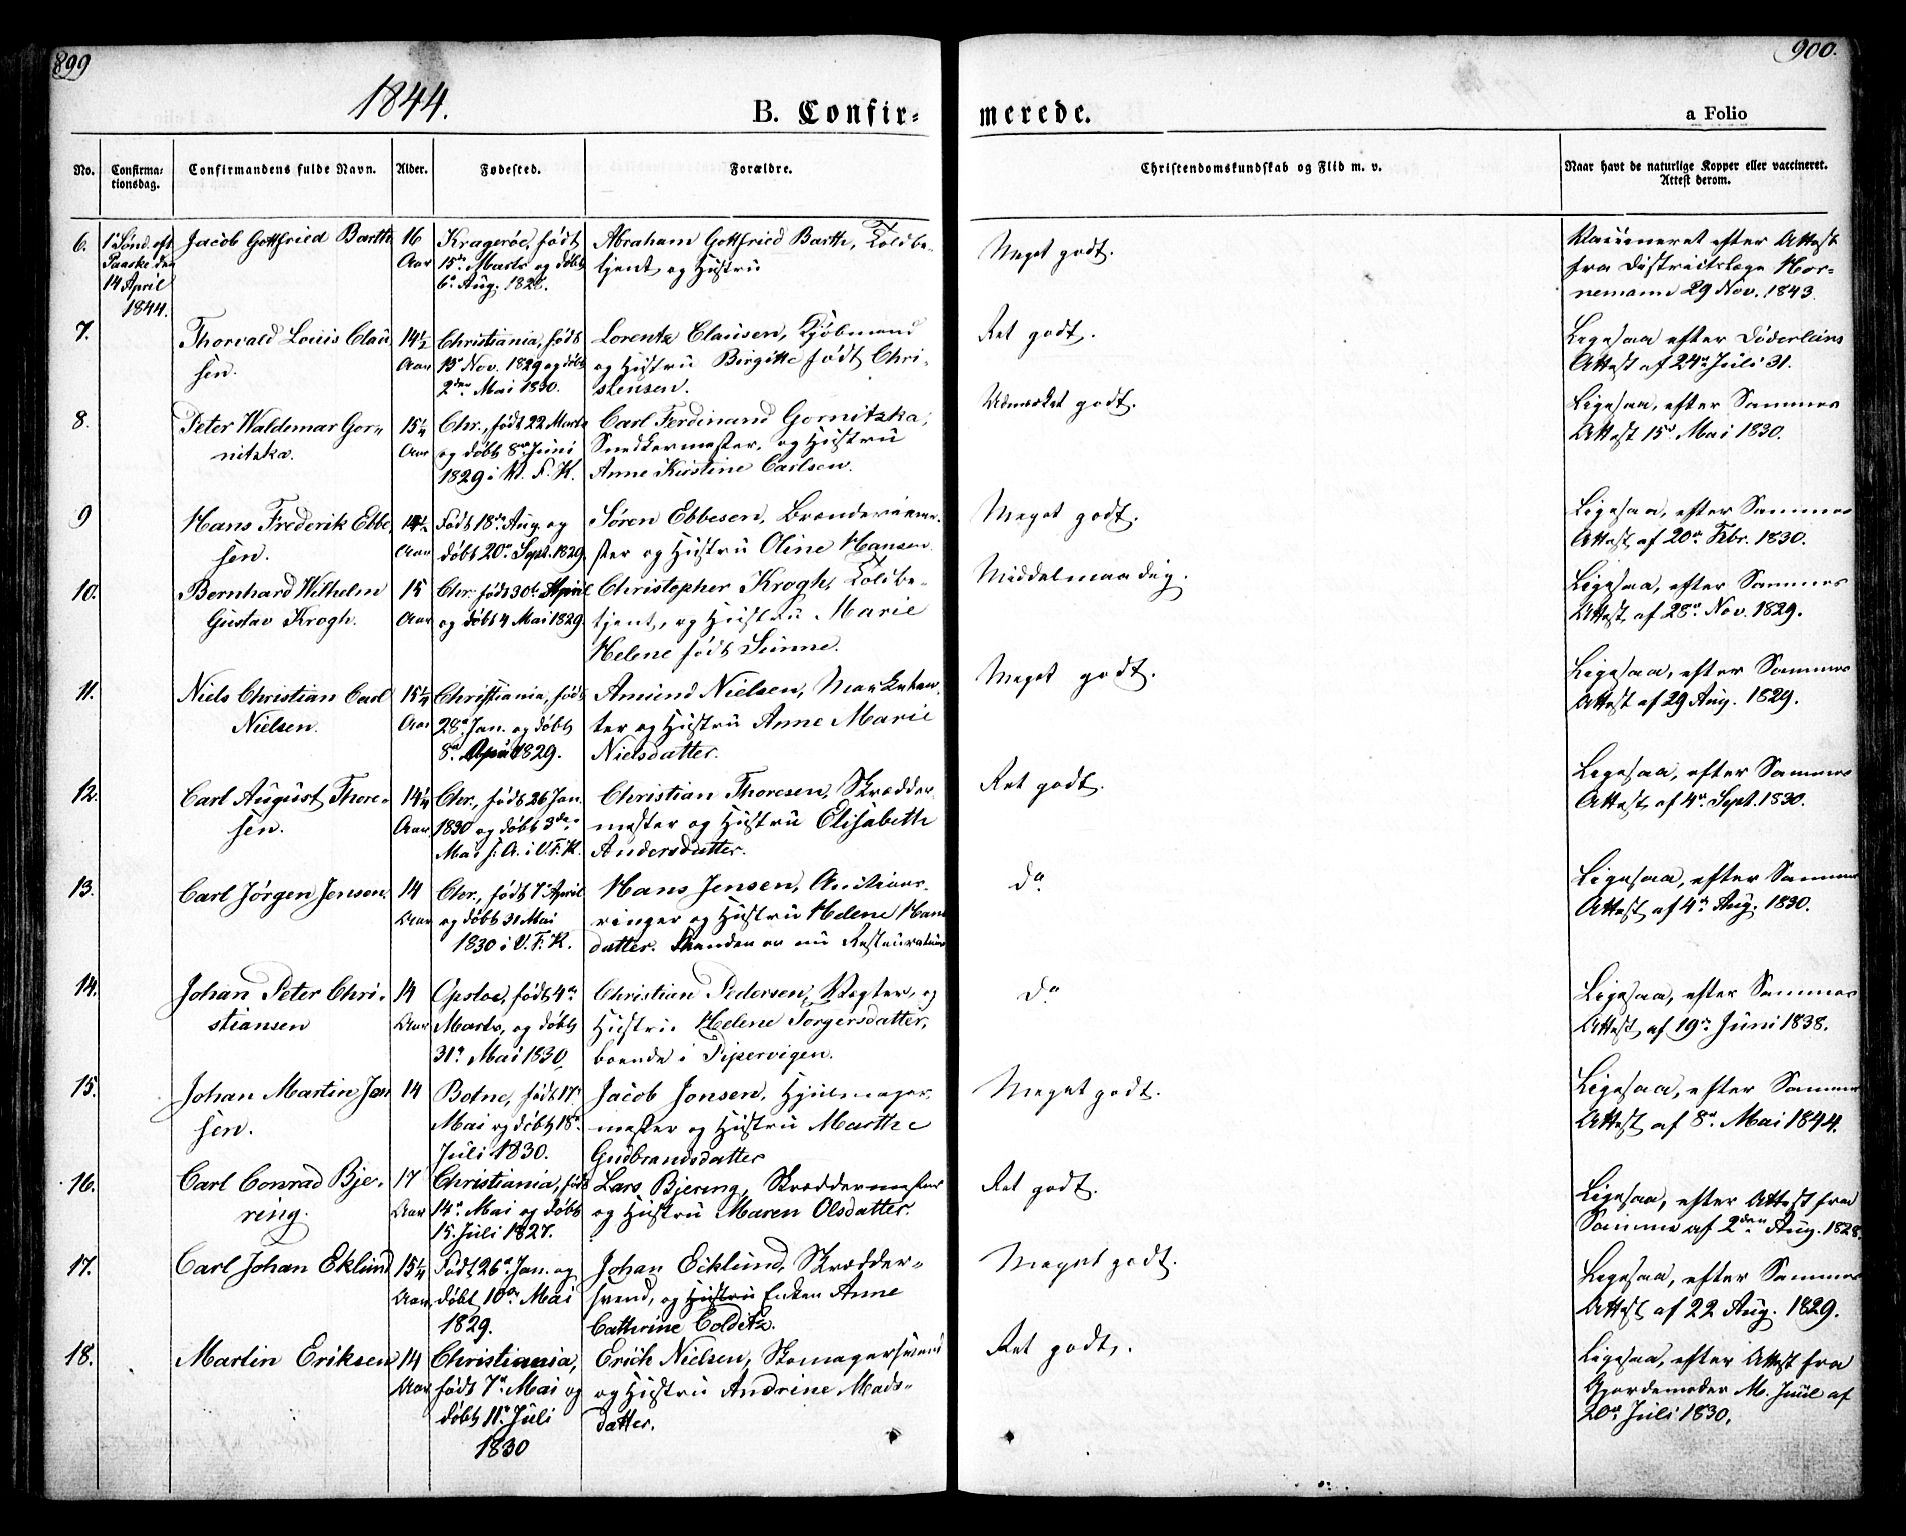 899
900.
1844.
B. Confir-
merede.
a Folio
No.
Confirma-
tionsdag.
Confirmandens fulde Navn.
Alder.
Fødested.
Forældre.
Christendomskundskab og Flid m. v.
Naar havt de naturlige Kopper eller vaccineret.
Attest derom.
6.
1e Sønd. eft.
Paaske den
14 April
1844.
Jacob Gottfried Barth
16
Aar
Kragerøe, født
15de Marts og døbt
6e Aug. 1828.
Abraham Gottfried Barth, Toldbe-
tjent og Hustru
Meget godt.
Vaccineret efter Attest
fra Districtslæge Hor-
nemann 29 Nov. 1843.
7.
Thorvald Louis Clau
sen.
14½
Aar
Christiania, født
15e Nov. 1829 og døbt
2den Mai 1830.
Lorentz Clausen, Kjøbmand
og Hustru Birgitte født Chri-
stensen.
Ret godt.
Ligesaa efter Døderleins
Attest af 24de Juli 31.
8.
Peter Waldemar Gor-
nitzka.
15¼
Aar
Chr., født 22 Marts
og døbt 8de Juni
1829 i V. F. K.
Carl Ferdinand Gornitzka,
Snedkermester, og Hustru
Anne Kirstine Carlsen.
Udmærket godt.
Ligesaa, efter Sammes
Attest 15de Mai 1830.
9
Hans Frederik Ebbe
sen.
14½
Aar
Født 18de Aug. og
døbt 20de Sept. 1829.
Søren Ebbesen, Brænderimes-
ter og Hustru Oline Hansen.
Meget godt.
Ligesaa, efter Sammes
Attest af 20de Febr. 1830.
10.
Bernhard Wilhelm
Gustav Krogh.
15
Aar
Chr. født 30te April
og døbt 4 Mai 1829.
Christopher Krogh, Toldbe-
tjent, og Hustru Marie
Helene født Sunne.
Middelmaadig.
Ligesaa, efter Sammes
Attest af 28de Nov. 1829.
11.
Niels Christian Carl
Nielsen.
15¼
Aar
Christiania, født
28de Jan. og døbt
8de April 1829.
Amund Nielsen, Marketen-
ter og Hustru Anne Marie
Nielsdatter.
Meget godt.
Ligesaa, efter Sammes
Attest af 29 Aug. 1829.
12.
Carl August Thore-
sen.
14¼
Aar
Chr., født 26 Jan.
1830 og døbt 3die
Mai s. A. i V. F. K.
Christian Thoresen, Skrædder-
mester og Hustru Elisabeth
Andersdatter.
Ret godt.
Ligesaa, efter Sammes
Attest af 4de Sept. 1830.
13.
Carl Jørgen Jensen.
14
Aar
Chr., født 7e April
og døbt 31 Mai
1830 i V. F. K.
Hans Jensen,
og Hustru Helene Hans
datter. Manden er nu Restaurateur
do
Ligesaa, efter Sammes
Attest af 4de Aug. 1830.
14.
Johan Peter Chri-
stiansen
14
Aar
Opsloe, født 4de
Marts, og døbt
31te Mai 1830.
Christian Pedersen, Vægter, og
Hustru Helene Torgersdatter,
boende i Pipervigen.
do
Ligesaa, efter Sammes
Attest af 19de Juni 1838.
15.
Johan Martin Jan
sen.
14
Botne, født 17e
Mai og døbt 18de
Juli 1830.
Jacob Jonsen, Hjulmager-
mester og Hustru Marthe
Gudbrandsdatter
Meget godt.
Ligesaa, efter Sammes
Attest af 8de Mai 1844.
16.
Carl Conrad Bjer-
ring.
17
Aar
Christiania, født
14de Mai og døbt
15. Juli 1827.
Lars Bjering, Skræddermester
og Hustru Maren Olsdatter.
Ret godt.
Ligesaa, efter Attest fra
Samme af 2den Aug. 1828.
17.
Carl Johan Eklund
15¼
Aar
Født 26de Jan. og
døbt 10de Mai
1829.
Johan Ecklund, Skrædder-
svend, og Hustru Enken Anne
Cathrine Colditz.
Meget godt.
Ligesaa, efter Sammes
Attest af 22 Aug. 1829.
18.
Martin Eriksen
14
Aar
Christiania,
født 7de Mai og
døbt 11te Juli
1830
Erich Nielsen, Skomagersvend
og Hustru Andrine Mads-
datter.
Ret godt.
Ligesaa, efter Attest fra
Gjordemoder M. Juul af
20de Juli 1830.